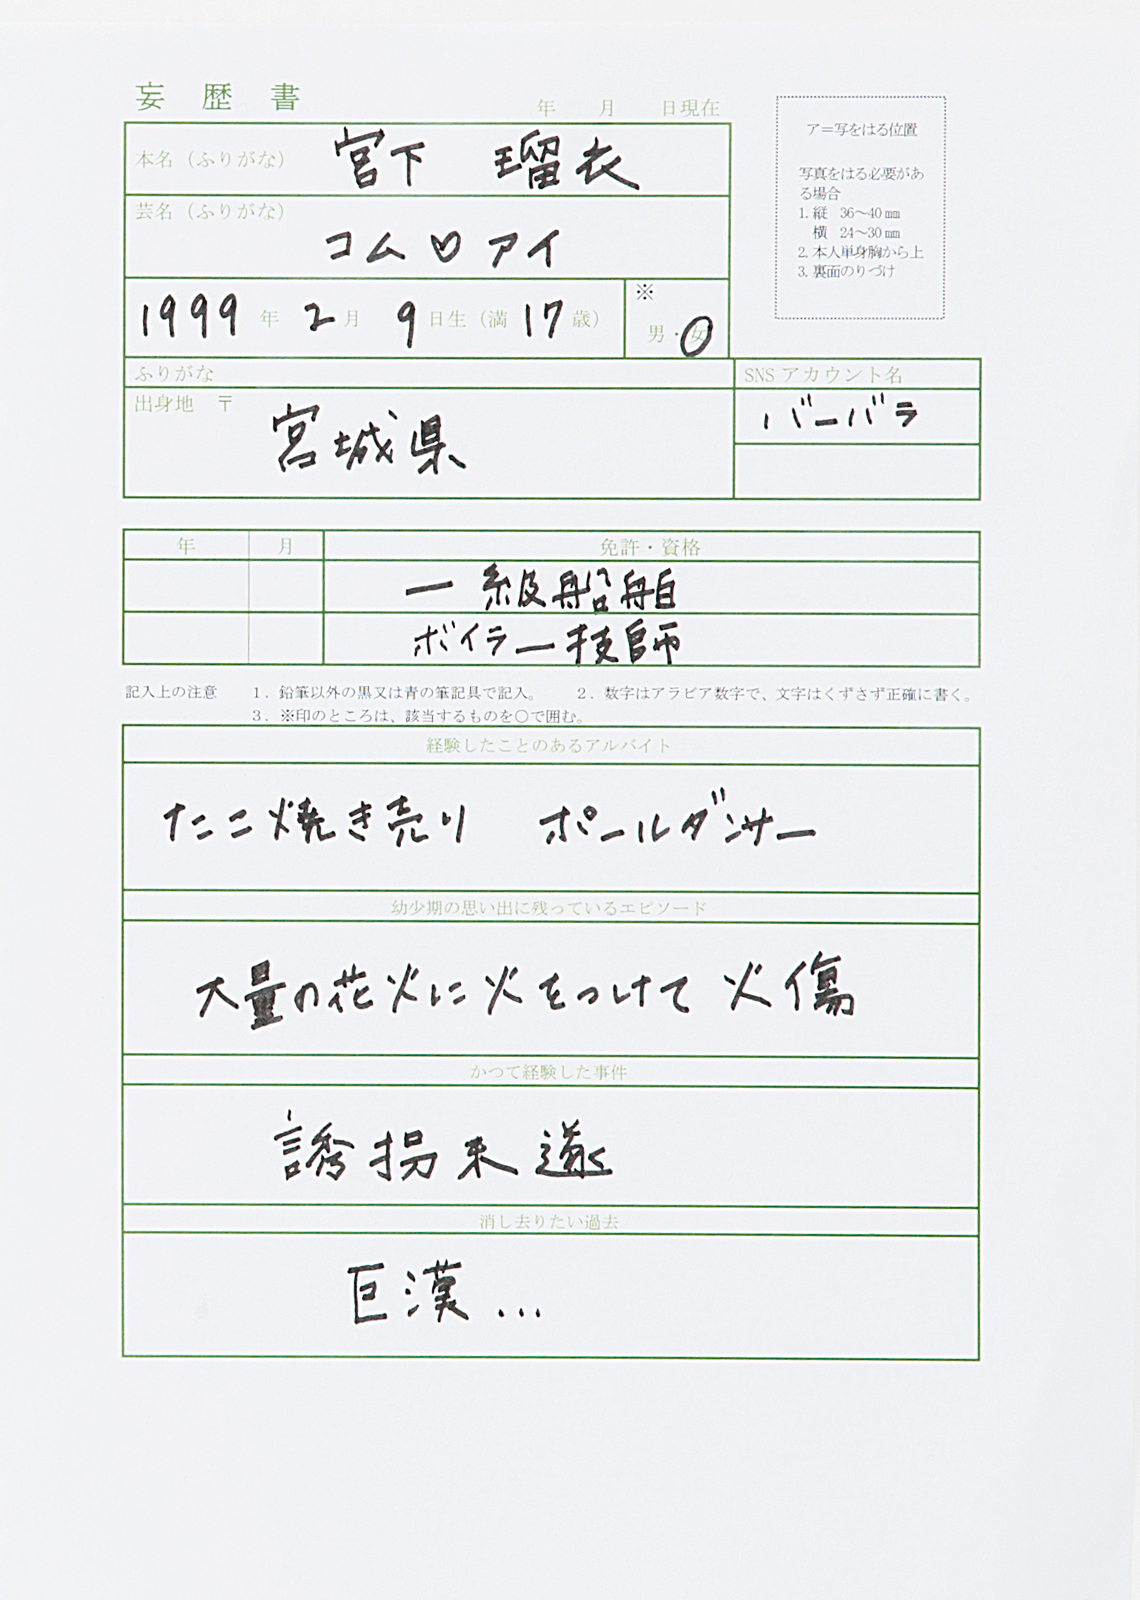 妄歴書
年 月 日現在
ア=写をはる位置
写真をはる必要があ
る場合
1. 縦 36〜40㎜
横 24〜30㎜
2. 本人単身胸から上
3. 裏面のりづけ
本名（ふりがな） 宮下 瑠衣
芸名（ふりがな）
コム♡アイ
1999年 2月 9日生（満 17歳）
※
男・女
ふりがな
SNSアカウント名
出身地 〒
宮城県
バーバラ
年 月 免許・資格
一級船舶
ボイラー技師
記入上の注意 1．鉛筆以外の黒又は青の筆記具で記入。 2．数字はアラビア数字で、文字はくずさず正確に書く。
3．※印のところは、該当するものを○で囲む。
経験したことのあるアルバイト
たこ焼き売り ポールダンサー
幼少期の思い出に残っているエピソード
大量の花火に火をつけて火傷
かつて経験した事件
誘拐未遂
消し去りたい過去
巨漢...